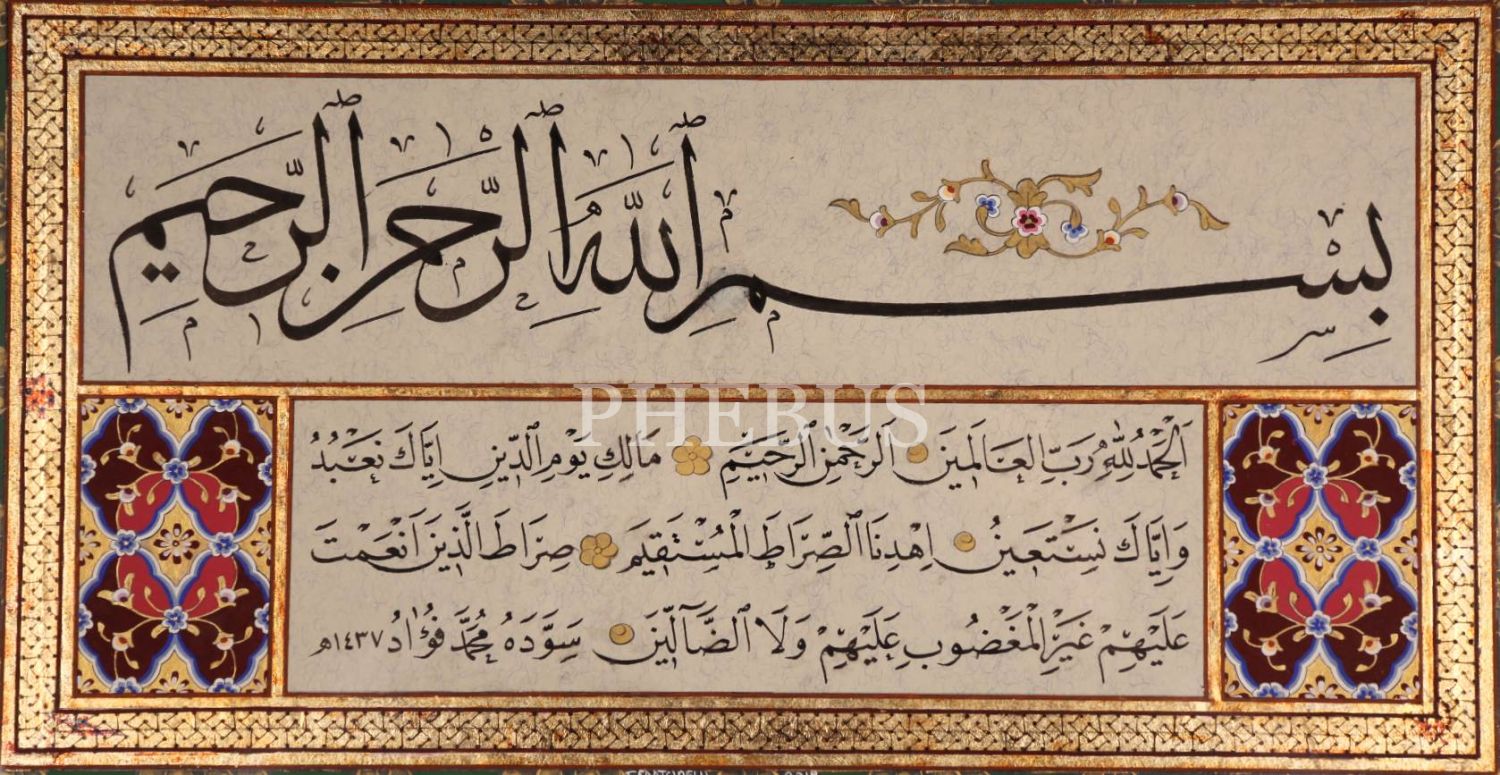 بِسْمِ اللّٰهِ الرَّحْمٰنِ الرَّحِيمِ
PHEBUS
اَلْحَمْدُ لِلّٰهِ رَبِّ الْعَالَمِينَ الرَّحْمٰنِ الرَّحِيمِ مَالِكِ يَوْمِ الدِّينِ اِيَّاكَ نَعْبُدُ
وَاِيَّاكَ نَسْتَعِينُ اِهْدِنَا الصِّرَاطَ الْمُسْتَقِيمَ صِرَاطَ الَّذِينَ اَنْعَمْتَ
عَلَيْهِمْ غَيْرِ الْمَغْضُوبِ عَلَيْهِمْ وَلَا الضَّآلِّينَ سَوَّدَهُ مُحَمَّد فُؤَادُ ١٤٣٧هـ